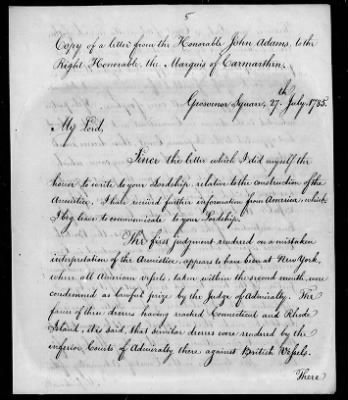 5
Copy of a letter from the Honorable John Adams, to the
Right Honorable, the Marquis of Carmarthen.
Grosvenor Square, 27.th July 1785.
My Lord,
Since the letter which I did myself the
honor to write to your Lordship, relative to the construction of the
Armistice, I have received further information from America, which
I beg leave to communicate to your Lordship.
The first judgment rendered on a mistaken
interpretation of the Armistice, appears to have been at New York,
where all American vessels, taken within the second month, were
condemned as lawful prize by the Judge of Admiralty. The
fame of these decrees having reached Connecticut and Rhode
Island, it is said, that similar decrees were rendered by the
inferior Courts of Admiralty there against British Vessels.
There